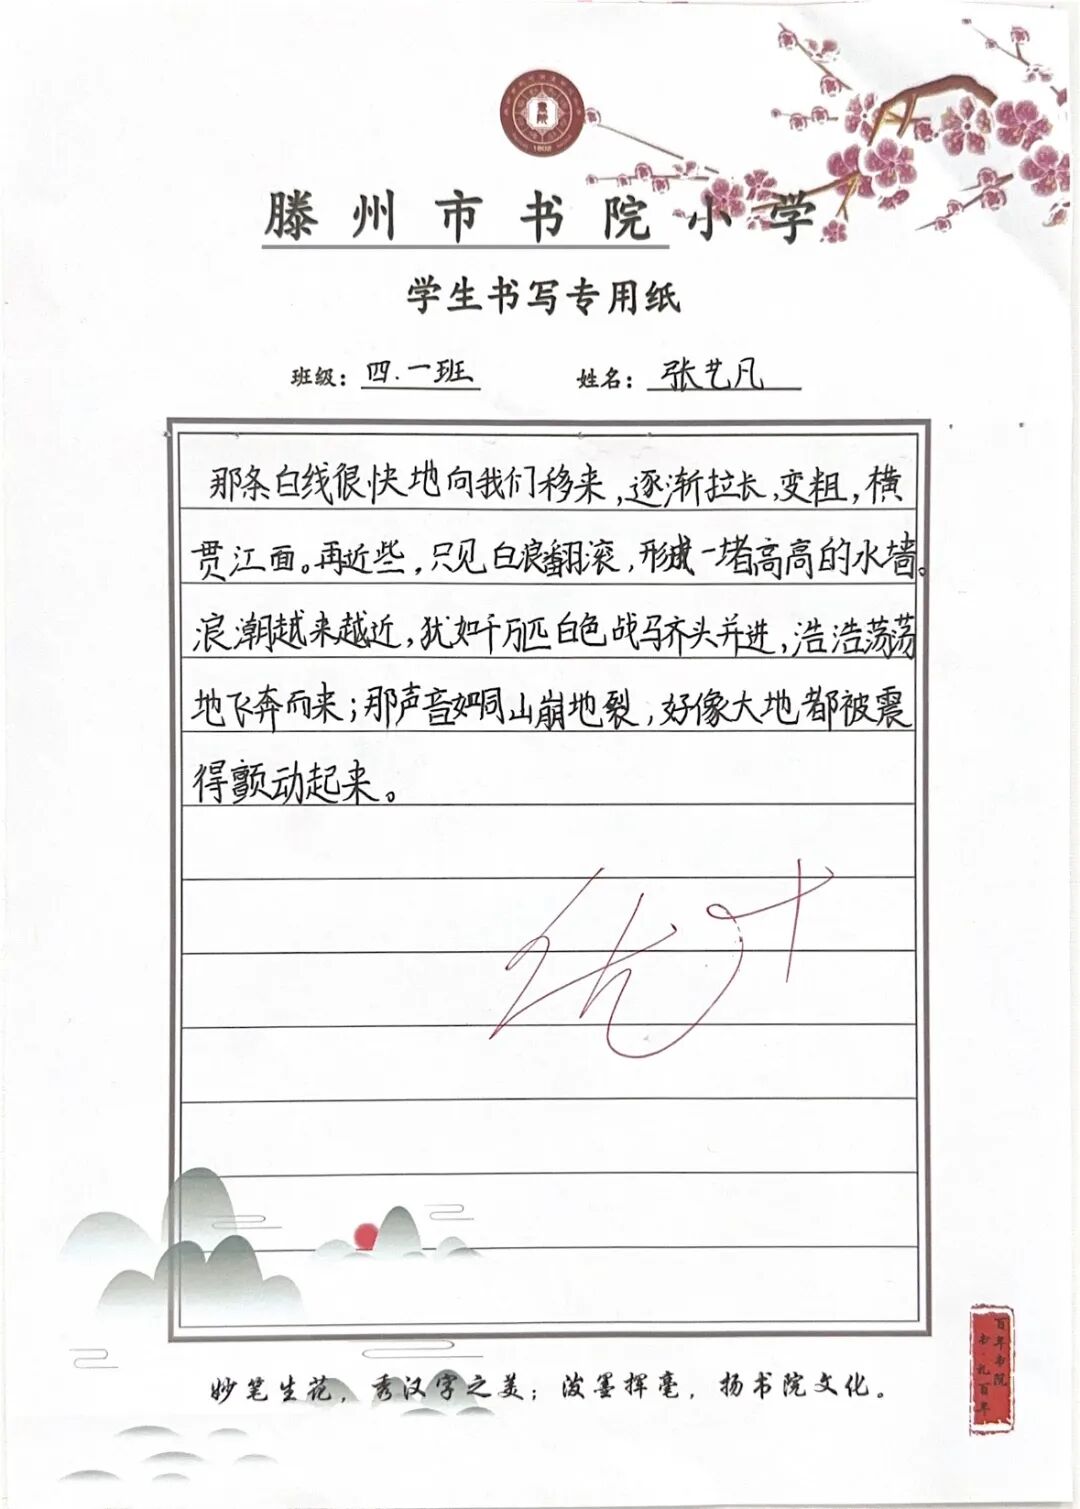 滕州市书院小学
学生书写专用纸
班级：四.一班 姓名：张艺凡
那条白线很快地向我们移来，逐渐拉长，变粗，横
贯江面。再近些，只见白浪翻滚，形成一堵高高的水墙。
浪潮越来越近，犹如千万匹白色战马齐头并进，浩浩荡荡
地飞奔而来；那声音如同山崩地裂，好像大地都被震
得颤动起来。
优+
妙笔生花，秀汉字之美；泼墨挥毫，扬书院文化。
百年书院
书礼百年